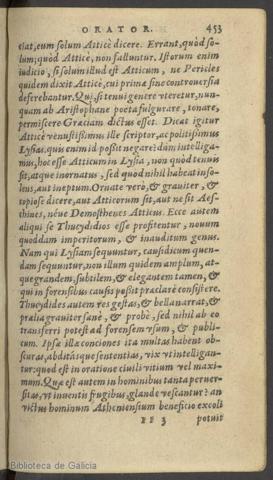 ORATOR. 453
eiat, eum solum Atticè dicere. Errant, quòd so-
lum; quòd Atticè, non falluntur. Istorum enim
iudicio, si solum illud est Atticum, ne Pericles
quidem dixit Atticè, cui primæ sine controuersia
deferebantur. Qui, si tenui genere vteretur, nun-
quam ab Aristophane poëta fulgurare, tonare,
permiscere Græciam dictus esset. Dicat igitur
Atticè venustissimus ille scriptor, ac politissimus
Lysias, quis enim id possit negare? dum intelliga-
mus, hoc esse Atticum in Lysia, non quòd tenuis
sit, atque inornatus, sed quòd nihil habeat inso-
lens, aut ineptum. Ornatè verò, & grauiter, &
copiosè dicere, aut Atticorum sit, aut ne sit Aes-
chines, néue Demosthenes Atticus. Ecce autem
aliqui se Thucydidios esse profitentur, nouum
quoddam imperitorum, & inauditum genus.
Nam qui Lysiam sequuntur, causidicum quen-
dam sequuntur, non illum quidem amplum, at-
que grandem, subtilem, & elegantem tamen, &
qui in forensibus causis possit præclarè consistere.
Thucydides autem res gestas, & bella narrat, &
prælia grauiter sanè, & probè, sed nihil ab eo
transferri potest ad forensem vsum, & publi-
cum. Ipsæ illæ conciones ita multas habent ob-
scuras, abditásque sententias, vix vt intelligan-
tur: quod est in oratione ciuili vitium vel maxi-
mum. Quæ est autem in hominibus tanta peruer-
sitas, vt inuentis frugibus, glande vescantur? an
victus hominum Atheniensium beneficio excoli
FF 3 potuit
Biblioteca de Galicia